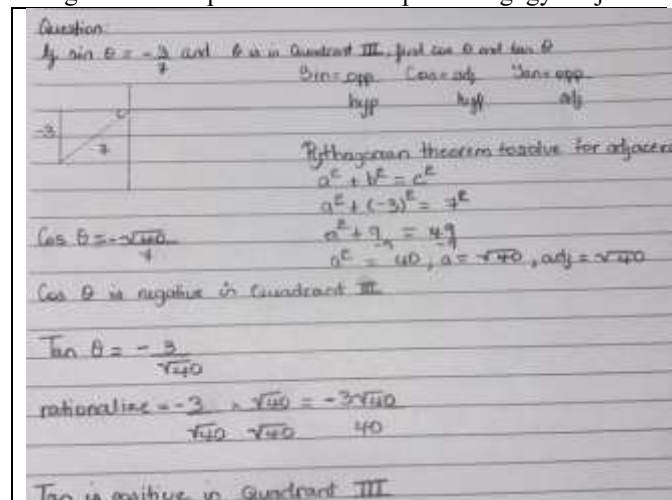 Question:
If sin θ = -3/7 and θ is in Quadrant III, find cos θ and tan θ
Sin = opp/hyp Cos = adj/hyp Tan = opp/adj
-3
7
Pythagorean theorem to solve for adjacent
a² + b² = c²
a² + (-3)² = 7²
a² + 9 = 49
-9 -9
a² = 40, a = √40, adj = √40
Cos θ = -√40/7
Cos θ is negative in Quadrant III
Tan θ = -3/√40
rationalize = -3/√40 × √40/√40 = -3√40/40
Tan is positive in Quadrant III